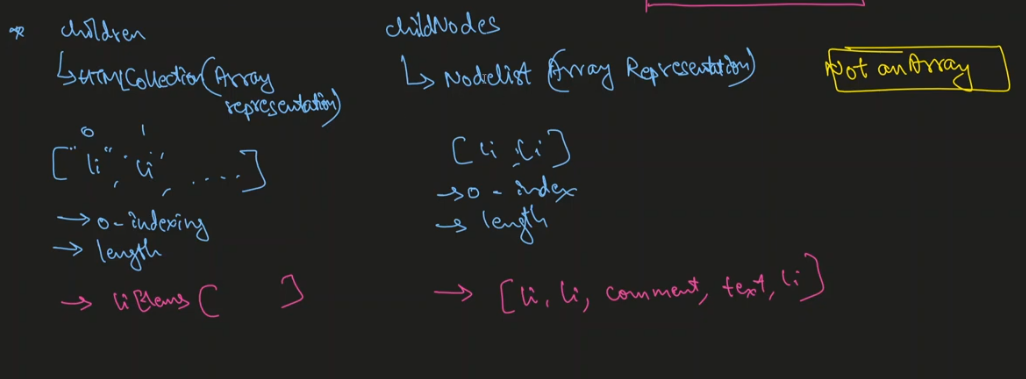 * children
↳ HTMLCollection (Array representation)
0 1
["li", 'li', ....]
→ 0-indexing
→ length
→ liElems [ ]
childNodes
↳ Nodelist (Array Representation)
[li, li]
→ 0 - index
→ length
→ [li, li, comment, text, li]
Not an Array